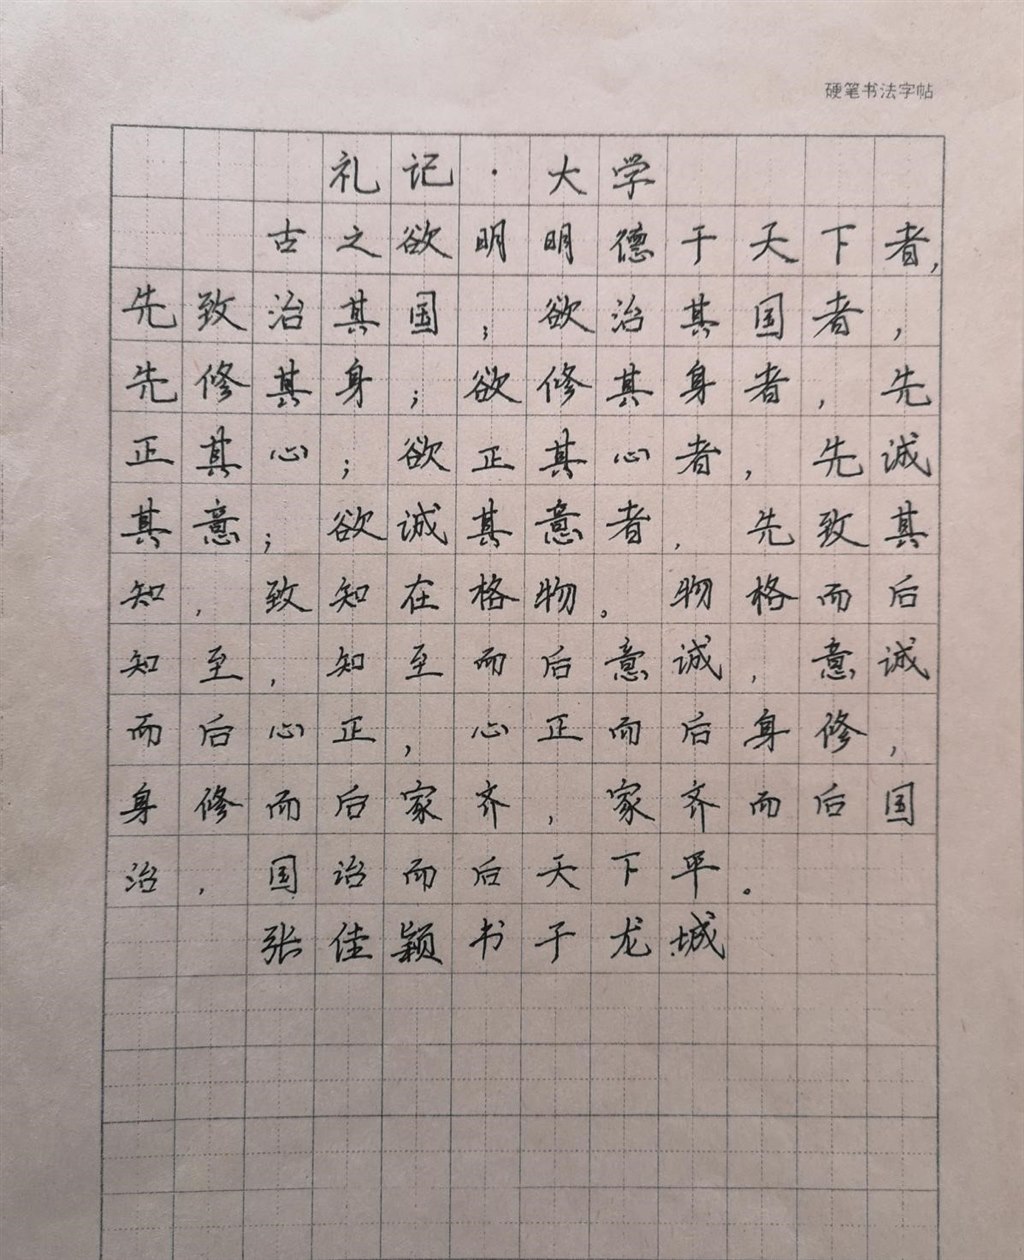 硬笔书法字帖
礼记·大学
古之欲明明德于天下者,
先致治其国;欲治其国者,
先修其身;欲修其身者,先
正其心;欲正其心者,先诚
其意;欲诚其意者,先致其
知,致知在格物。物格而后
知至,知至而后意诚,意诚
而后心正,心正而后身修,
身修而后家齐,家齐而后国
治,国治而后天下平。
张佳颖书于龙城